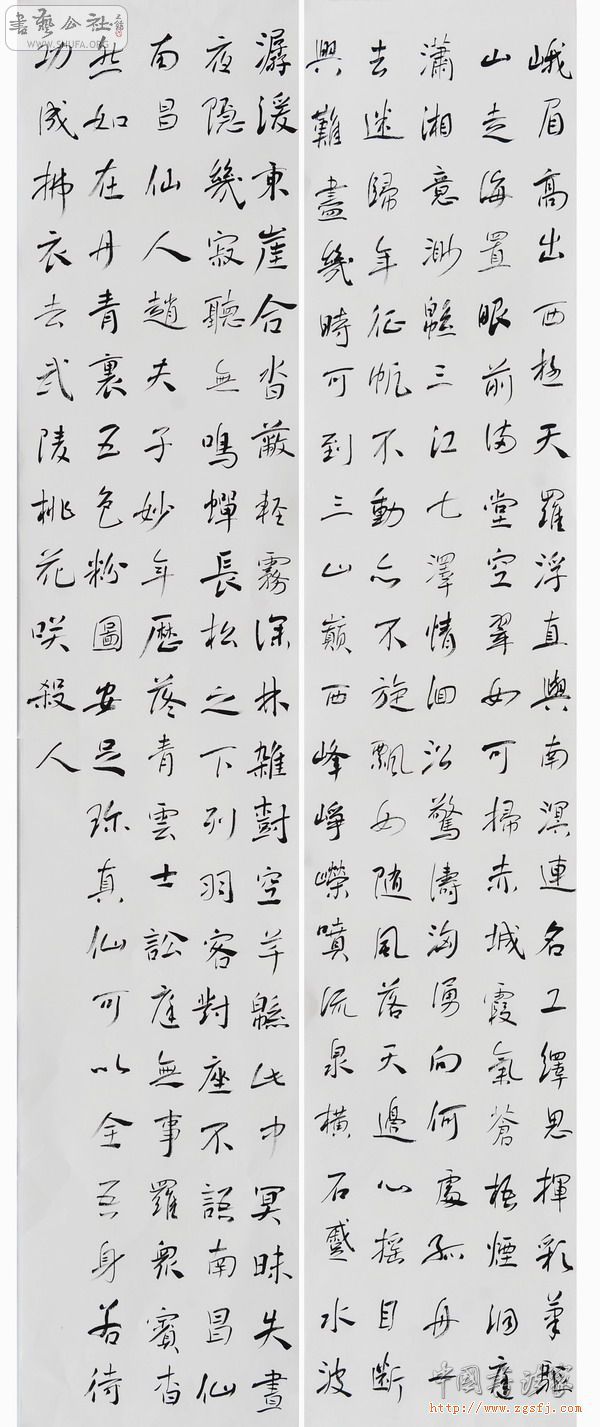 峨眉高出西極天羅浮直與南溟連名工繹思揮彩筆驅
山走海置眼前滿堂空翠如可掃赤城霞氣蒼梧煙洞庭
瀟湘意渺緜三江七澤情洄沿驚濤洶湧向何處孤舟一
去迷歸年征帆不動亦不旋飄如随風落天邊心摇目斷
興難盡幾時可到三山巔西峰崢嶸噴流泉橫石蹙水波
潺湲東崖合沓蔽輕霧深林雜樹空芊緜此中冥昧失晝
夜隱幾寂聽無鳴蟬長松之下列羽客對座不語南昌仙
南昌仙人趙夫子妙年歷落青雲士訟庭無事羅衆賓杳
然如在丹青裏五色粉圖安足珍真仙可以全吾身若待
功成拂衣去武陵桃花咲殺人
書藝公社
WWW.SHUFA.ORG
http://www.zgsfj.com